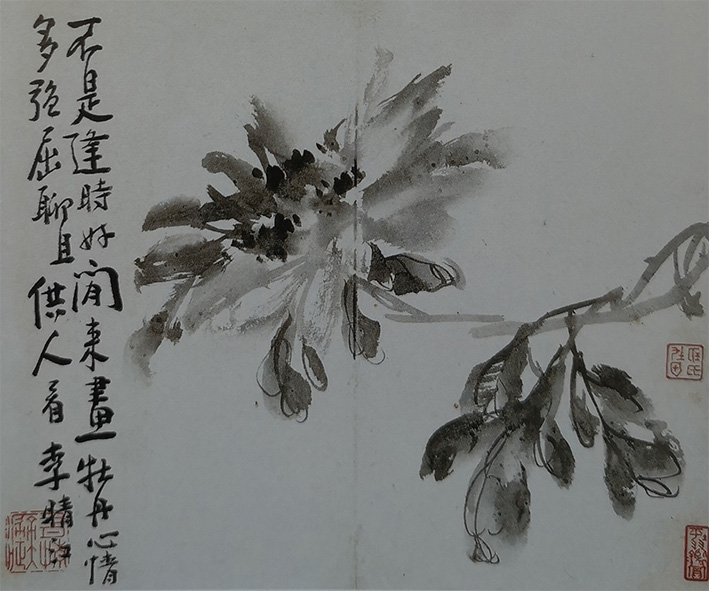 不是逢時好閒來畫牡丹心情
多強屈聊且供人看 李晴江